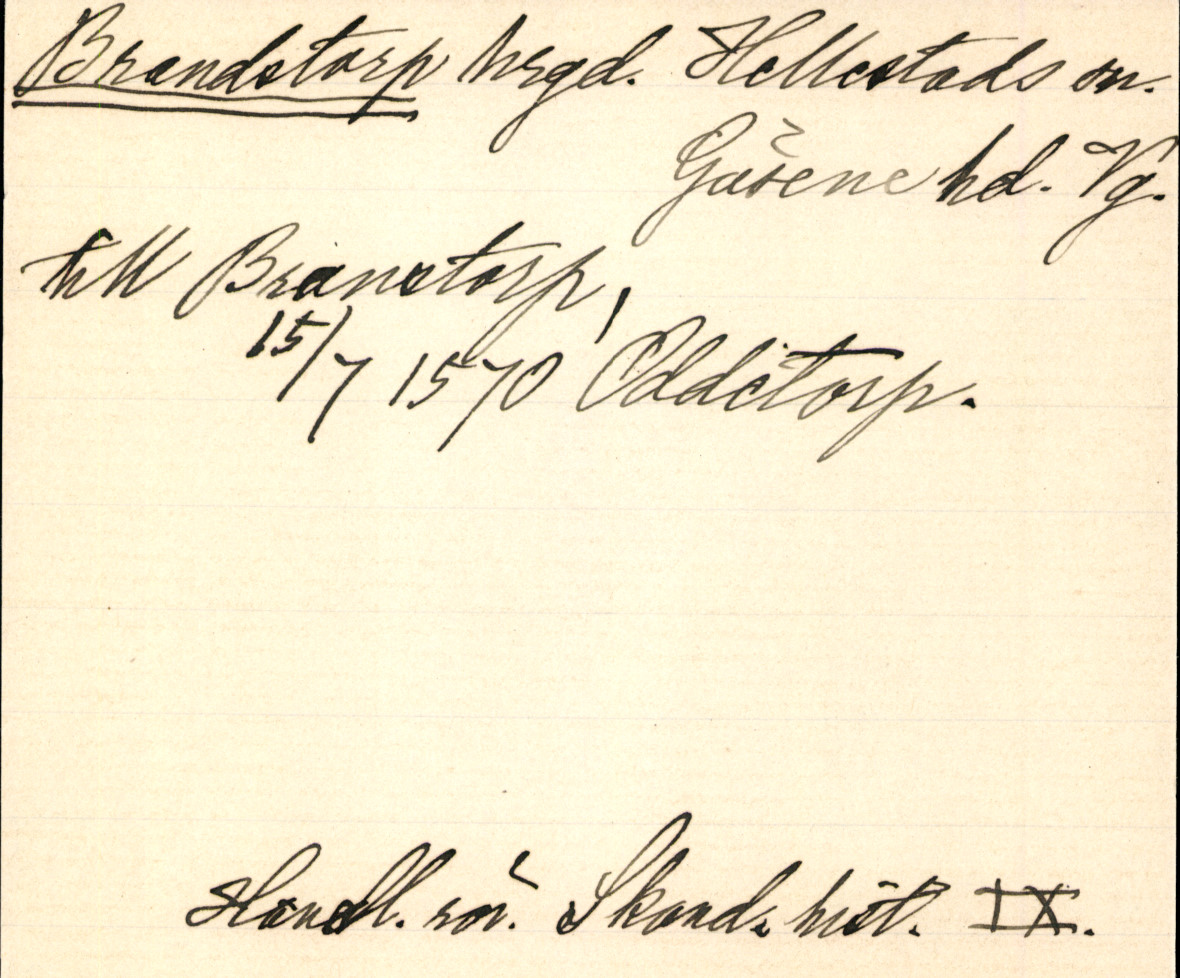 Brandstorp hrgd. Hellestads sn.
Gäsene hd. Vg.
till Branstorp,
15/7 1570 Oddstorp.
Handl. rör. Skand. hist. IX.